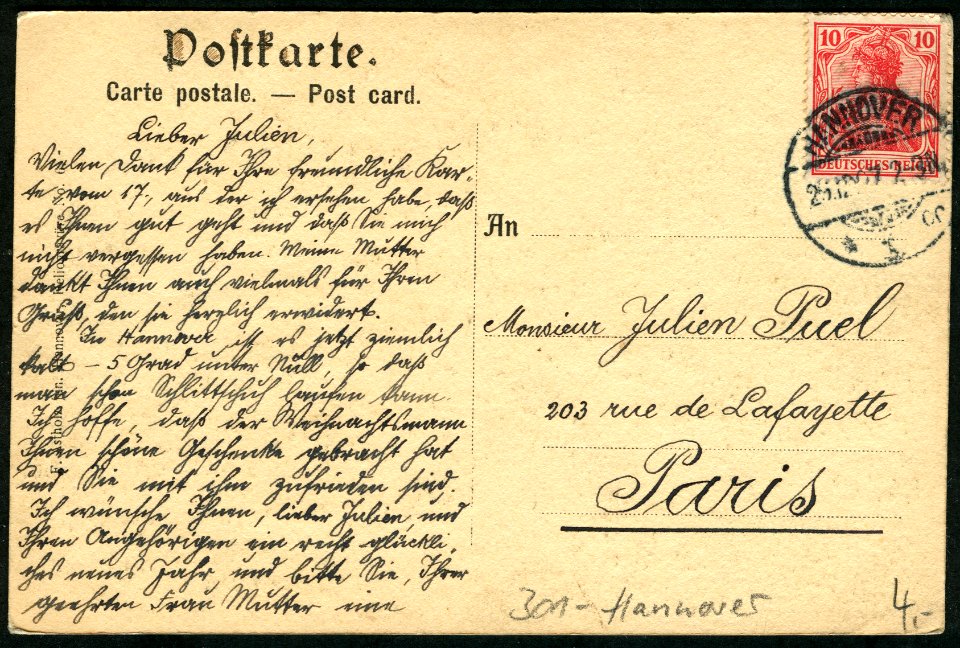 Postkarte.
Carte postale. — Post card.
Lieber Julien,
Vielen Dank für Ihre freundliche Kar-
te vom 17., aus der ich ersehen habe, daß
es Ihnen gut geht und daß Sie mich
nicht vergessen haben. Meine Mutter
dankt Ihnen auch vielmals für Ihren
Gruß, den sie herzlich erwidert.
In Hannover ist es jetzt ziemlich
kalt – 5 Grad unter Null, so daß
man schon Schlittschuh laufen kann.
Ich hoffe, daß der Weihnachtsmann
Ihnen schöne Geschenke gebracht hat
und Sie mit ihm zufrieden sind.
Ich wünsche Ihnen, lieber Julien, und
Ihren Angehörigen ein recht glückli-
ches neues Jahr, und bitte Sie, Ihrer
geehrten Frau Mutter eine
10 10
DEUTSCHES REICH
HANNOVER
An
Monsieur Julien Puel
203 rue de Lafayette
Paris
301- Hannover
4,-